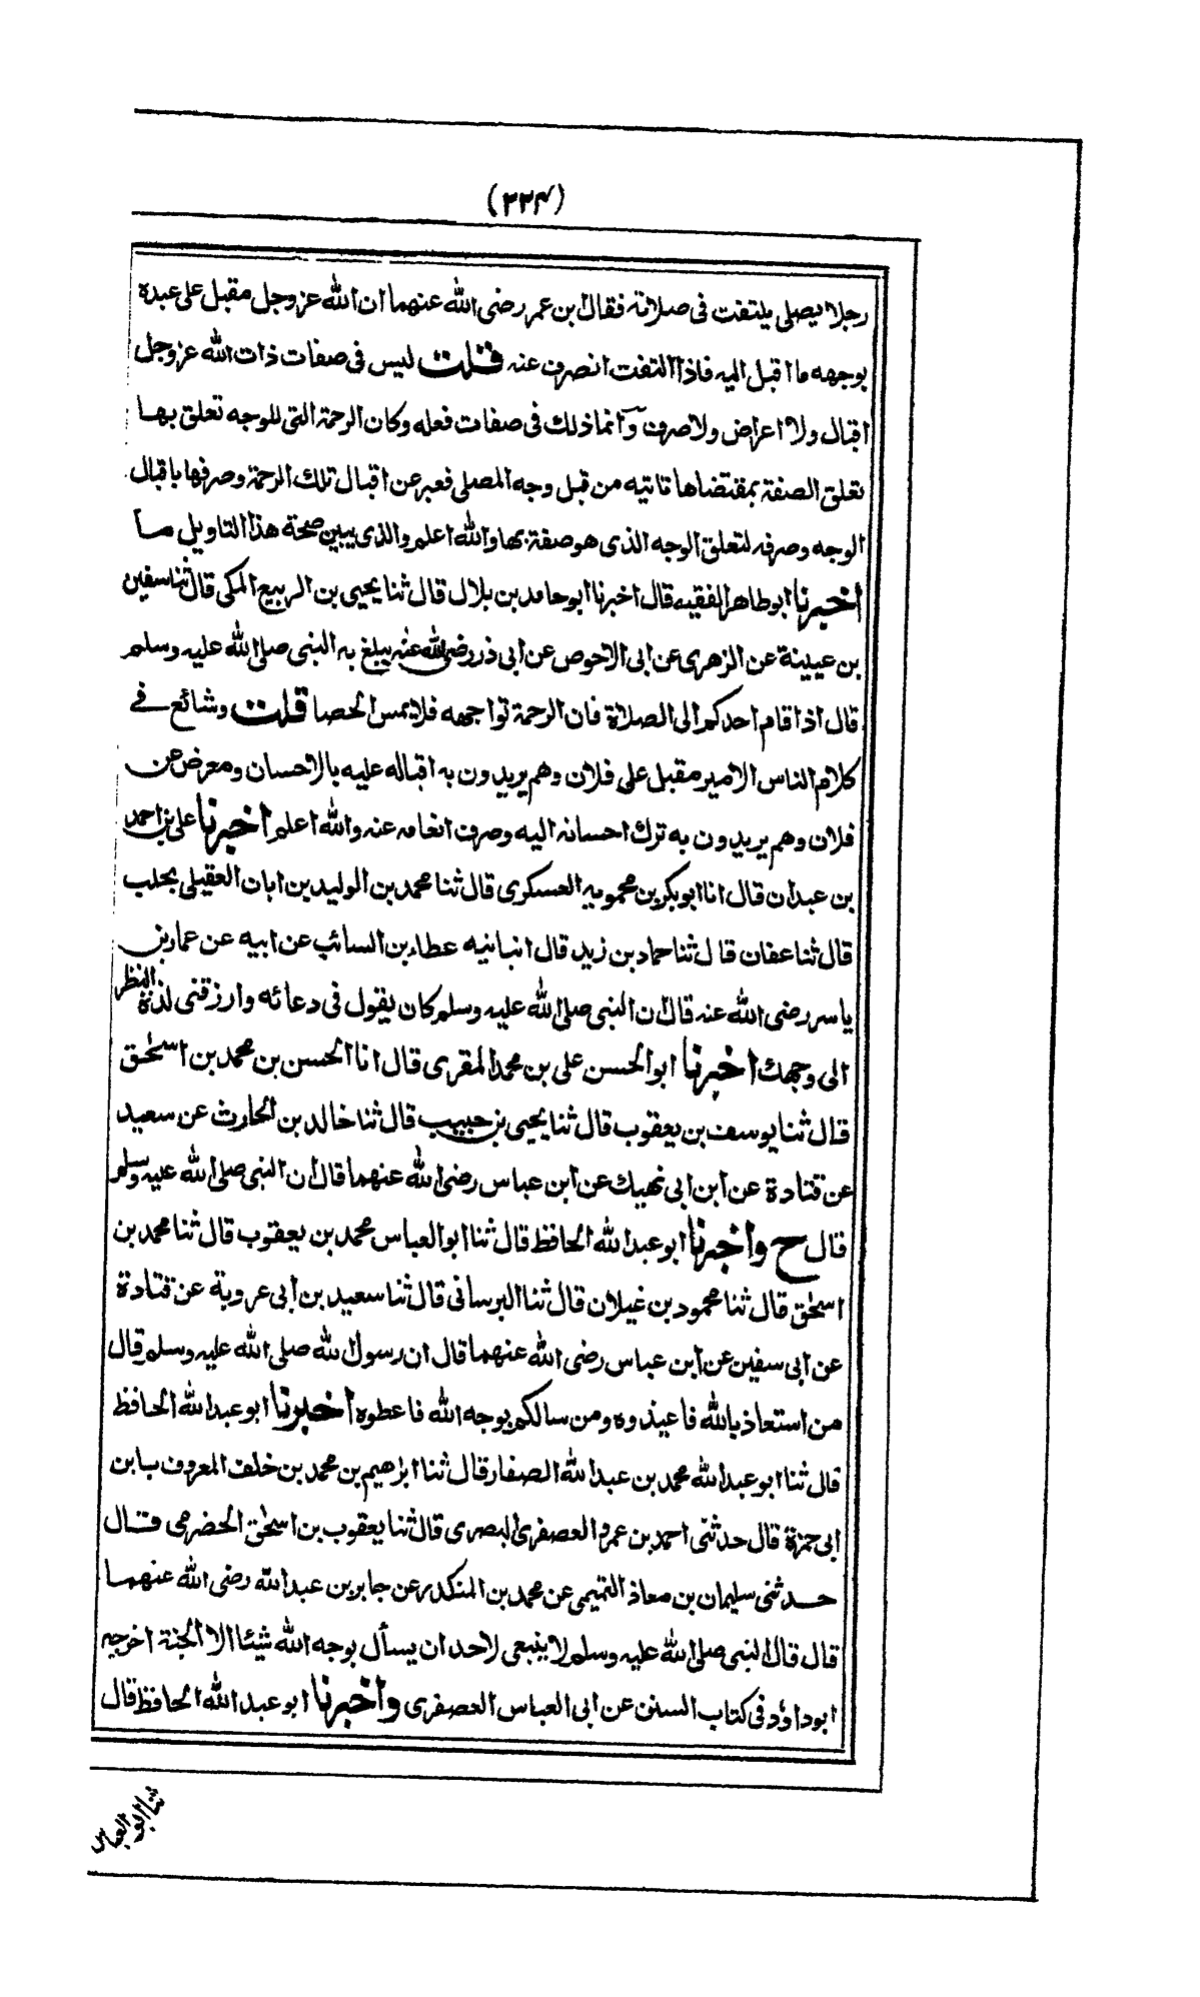 (۲۲۴)
رجلا يصلى يلتفت فى صلاته فقال ابن عمر رضى الله عنهما ان الله عز وجل مقبل على عبده
بوجهه ما اقبل اليه فاذا التفت انصرف عنه قلت ليس فى صفات ذات الله عز وجل
اقبال ولا اعراض ولا صرف وانما ذلك فى صفات فعله وكان الرحمة التى للوجه تعلق بها
تعلق الصفة بمقتضاها تاتيه من قبل وجه المصلى فعبر عن اقبال تلك الرحمة وصرفها باقبال
الوجه وصرفه لتعلق الوجه الذى هو صفة بها والله اعلم والذى يبين صحة هذا التاويل ما
اخبرنا ابو طاهر الفقيه قال اخبرنا ابو حامد بن بلال قال ثنا يحيى بن الربيع المكى قال ثنا سفين
بن عيينة عن الزهرى عن ابى الاحوص عن ابى ذر رضى الله عنه يبلغ به النبى صلى الله عليه وسلم
قال اذا قام احدكم الى الصلاة فان الرحمة تواجهه فلا يمس الحصا قلت وشائع فے
كلام الناس الامير مقبل على فلان وهم يريدون به اقباله عليه بالاحسان ومعرض عن
فلان وهم يريدون به ترك احسانه اليه وصرف انعامه عنه والله اعلم اخبرنا على بن احمد
بن عبدان قال انا ابو بكر بن محمويه العسكرى قال ثنا محمد بن الوليد بن ابان العقيلى بحلب
قال ثنا عفان قال ثنا حماد بن زيد قال انبانيه عطاء بن السائب عن ابيه عن عمار بن
ياسر رضى الله عنه قال ان النبى صلى الله عليه وسلم كان يقول فى دعائه وارزقنى لذة النظر
الى وجهك اخبرنا ابو الحسن على بن محمد المقرى قال انا الحسن بن محمد بن اسحٰق
قال ثنا يوسف بن يعقوب قال ثنا يحيى بن حبيب قال ثنا خالد بن الحارث عن سعيد
عن قتادة عن ابن ابى نهيك عن ابن عباس رضى الله عنهما قال ان النبى صلى الله عليه وسلم
قال ح واخبرنا ابو عبد الله الحافظ قال ثنا ابو العباس محمد بن يعقوب قال ثنا محمد بن
اسحٰق قال ثنا محمود بن غيلان قال ثنا البرسانى قال ثنا سعيد بن ابى عروبة عن قتادة
عن ابى سفين عن ابن عباس رضى الله عنهما قال ان رسول الله صلى الله عليه وسلم قال
من استعاذ بالله فاعيذوه ومن سالكم بوجه الله فاعطوه اخبرنا ابو عبد الله الحافظ
قال ثنا ابو عبد الله محمد بن عبد الله الصفار قال ثنا ابراهيم بن محمد بن خلف المعروف بابن
ابى حمزة قال حدثنى احمد بن عمرو العصفرى البصرى قال ثنا يعقوب بن اسحٰق الحضرمى قال
حدثنى سليمان بن معاذ التميمى عن محمد بن المنكدر عن جابر بن عبد الله رضى الله عنهما
قال قال النبى صلى الله عليه وسلم لا ينبغى لاحد ان يسأل بوجه الله شيئا الا الجنة اخرجه
ابو داؤد فى كتاب السنن عن ابى العباس العصفرى واخبرنا ابو عبد الله الحافظ قال
ثنا ابو العباس